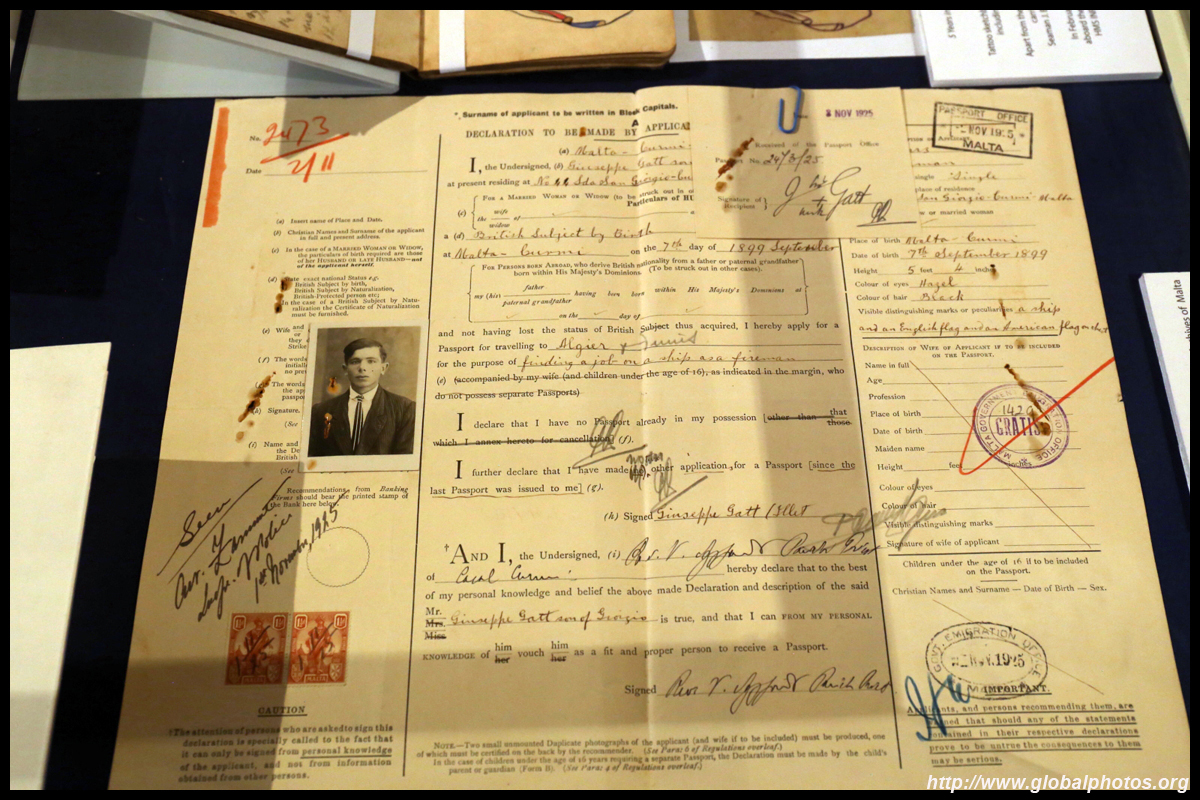 5 Years in
Tattoo sketch
includin
Apart from the
Seaman J.
In Februa
aboard the
HMS IN
hives of Malta
No. 2473
Date 2/11
(a) Insert name of Place and Date.
(b) Christian Names and Surname of the applicant
in full and present address.
(c) In the case of a MARRIED WOMAN OR WIDOW,
the particulars of birth required are those
of her HUSBAND OR LATE HUSBAND—and
not of the applicant herself.
(d) State exact national Status e.g.
British Subject by birth,
British Subject by Naturalization,
British-Protected person etc)
In the case of a British Subject by Natu-
ralization the Certificate of Naturalization
must be furnished.
(e) Wife and
or
they
Strike
(f) The words
initiall
no prev
(g) The words
the ap
passpo
(h) Signature.
(See
(i) Name and
the De
British
(See
Recommendations from Banking
Firms should bear the printed stamp of
the Bank here below.
Seen
Insp. Police
1st November, 1925
1½ 1½
CAUTION
†The attention of persons who are asked to sign this
declaration is specially called to the fact that
it can only be signed from personal knowledge
of the applicant, and not from information
obtained from other persons.
* Surname of applicant to be written in Block Capitals.
A
DECLARATION TO BE MADE BY APPLICA
(a) Malta - Curmi
I, the Undersigned, (b) Giuseppe Gatt son
at present residing at No 66 Sda San Giorgio-Cu
FOR A MARRIED WOMAN OR WIDOW (to be struck out in o
Particulars of HU
(c) the wife
widow of
a (d) British Subject by Birth
at Malta - Curmi on the 7th day of 1899 September
FOR PERSONS BORN ABROAD, who derive British nationality from a father or paternal grandfather
born within His Majesty's Dominions. (To be struck out in other cases).
my (his) father
paternal grandfather having been born within His Majesty's Dominions at
on the day of
and not having lost the status of British Subject thus acquired, I hereby apply for a
Passport for travelling to Algier & Tunis
for the purpose of finding a job on a ship as a fireman
(e) (accompanied by my wife (and children under the age of 16), as indicated in the margin, who
do not possess separate Passports)
I declare that I have no Passport already in my possession [other than that
those
which I annex hereto for cancellation] (f).
I further declare that I have made no other application for a Passport [since the
last Passport was issued to me] (g).
(h) Signed Giuseppe Gatt
†AND I, the Undersigned, (i) Rev. V. Parish Priest
of Casal Curmi hereby declare that to the best
of my personal knowledge and belief the above made Declaration and description of the said
Mr.
Mrs. Giuseppe Gatt son of Giorgio is true, and that I can FROM MY PERSONAL
Miss
KNOWLEDGE OF him
her vouch him
her as a fit and proper person to receive a Passport.
Signed Rev V. Parish Priest
NOTE.—Two small unmounted Duplicate photographs of the applicant (and wife if to be included) must be produced, one
of which must be certified on the back by the recommender. (See Para: 6 of Regulations overleaf.)
In the case of children under the age of 16 years requiring a separate Passport, the Declaration must be made by the child's
parent or guardian (Form B). (See Para: 4 of Regulations overleaf.)
3 NOV 1925
Received of the Passport Office
Passport No. 24/3/25
Signature of
Recipient
Gatt
PASSPORT OFFICE
NOV 1925
MALTA
single Single
place of residence
San Giorgio-Curmi-Malta
or married woman
Place of birth Malta - Curmi
Date of birth 7th September 1899
Height 5 feet 4 inches
Colour of eyes Hazel
Colour of hair Black
Visible distinguishing marks or peculiarities a ship
and an English flag and an American flag on chest
DESCRIPTION OF WIFE OF APPLICANT IF TO BE INCLUDED
ON THE PASSPORT.
Name in full
Age
Profession
Place of birth
Date of birth
Maiden name
Height feet inches
Colour of eyes
Colour of hair
Visible distinguishing marks
Signature of wife of applicant
MALTA GOVERNMENT EMIGRATION OFFICE
GRATIS
Children under the age of 16 if to be included
on the Passport.
Christian Names and Surname — Date of Birth — Sex.
GOVT. EMIGRATION OFFICE
NOV. 1925
IMPORTANT.
Applicants, and persons recommending them, are
warned that should any of the statements
contained in their respective declarations
prove to be untrue the consequences to them
may be serious.
http://www.globalphotos.org